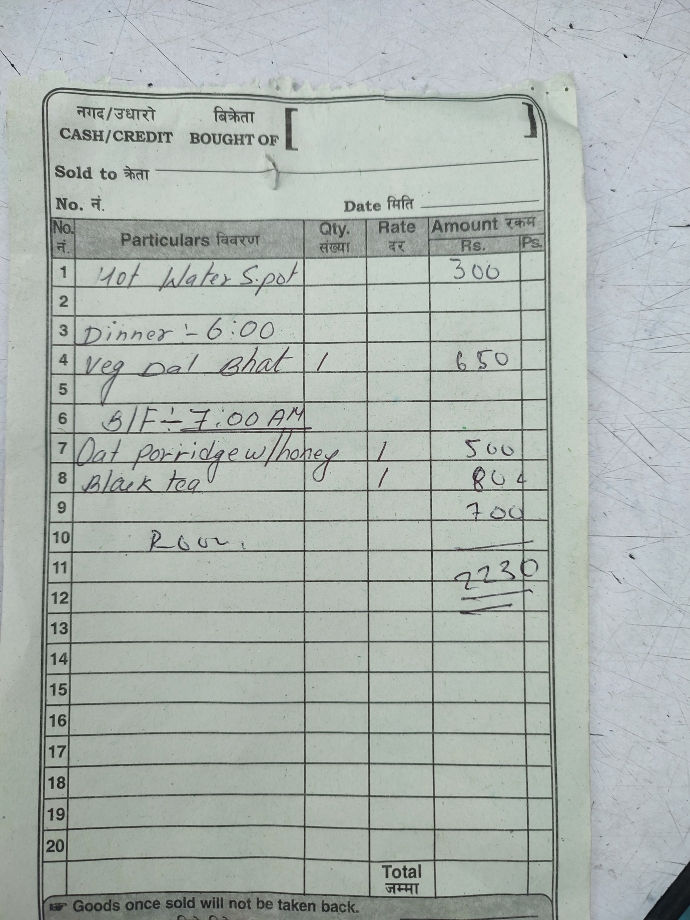 नगद/उधारो बिक्रेता [ ]
CASH/CREDIT BOUGHT OF
Sold to क्रेता
No. नं. Date मिति
No. नं. Particulars विवरण Qty. संख्या Rate दर Amount रकम Rs. Ps.
1 Hot Water Spot 300
2
3 Dinner :- 6:00
4 Veg Dal Bhat 1 650
5
6 B/F :- 7:00 AM
7 Oat Porridge w/honey 1 500
8 Black tea 1
9 700
10 Room.
11 2230
12
13
14
15
16
17
18
19
20
Total जम्मा
☞ Goods once sold will not be taken back.